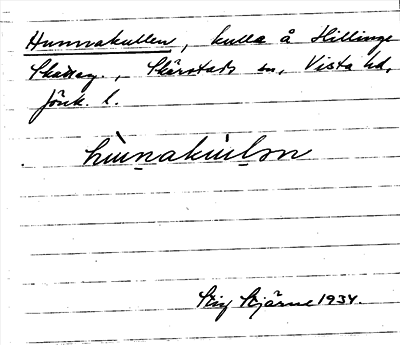 Hunnakullen, kulle å Hillinge
Skatteg., Skärstads sn, Vista hd,
Jönk. l.
hùnakùlən
Stig Stjärne 1934.